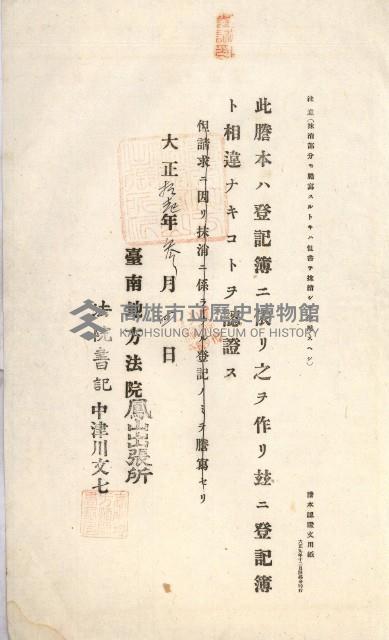 注意(抹消部分モ謄寫スルトキハ但書ヲ抹消
此謄本ハ登記簿ニ依リ之ヲ作リ玆ニ登記簿
ト相違ナキコトヲ認證ス
但請求ニ因リ抹消ニ係ラサル登記ノミヲ謄寫セリ
大正拾年 月 日
臺南地方法院鳳山出張所
法院書記 中津川文七
謄本認證文用紙
高雄市立歷史博物館
KAOHSIUNG MUSEUM OF HISTORY